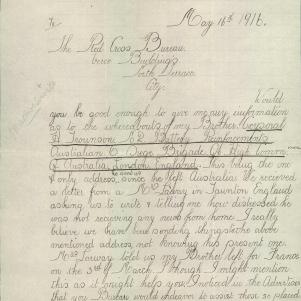 To
May 16th 1916.
The Red Cross Bureau.
Verco Buildings
North Terrace
City.
Would
you be good enough to give me any information
as to the whereabouts of my Brother, Corporal
Reinforcements
Australian Siege Brigade High Comm
of Australia, London, England. This being the one
& only address, since he left Australia. We received
a letter from a Mrs in Taunton England
asking us to write & telling how distressed he
was not receiving any news from home. I really
believe we have been sending things to the above
mentioned address, not knowing his present one.
Mrs told us my Brother left for France
on the 3rd of March. I though I might mention
this as it might help you. I noticed in the Advertiser
that your Bureau would endeavor to assist those so placed